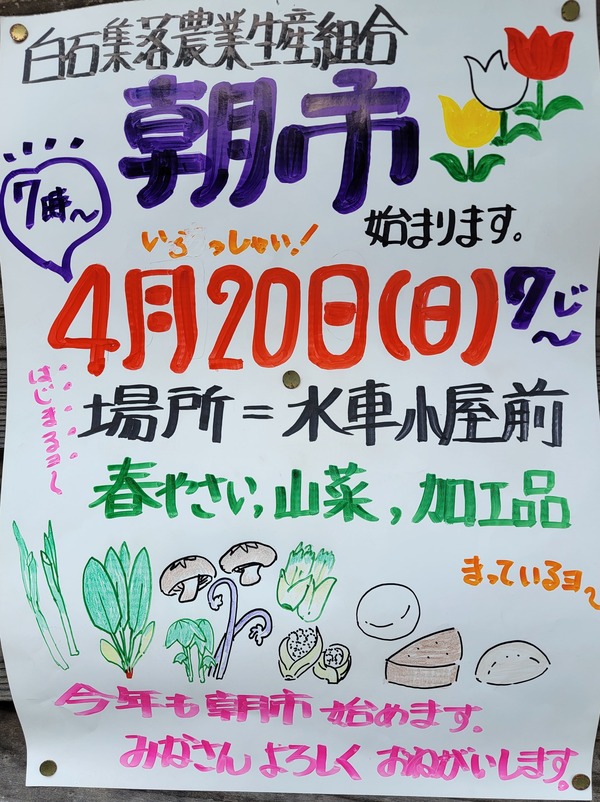 白石集落農業生産組合
朝市
7時～
始まります。
いらっしゃい!
4月20日(日)7じ～
はじまるヨ～
場所=水車小屋前
春やさい,山菜,加工品
まっているヨ～
今年も朝市始めます。
みなさんよろしくおねがいします。